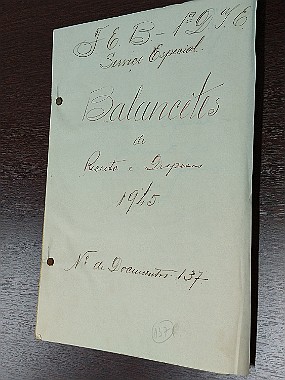 F E B - 1ª D. I. E
Serviço Especial
Balancêtes
de
Receita e Despesas
1945
Nº de Documentos 137
137